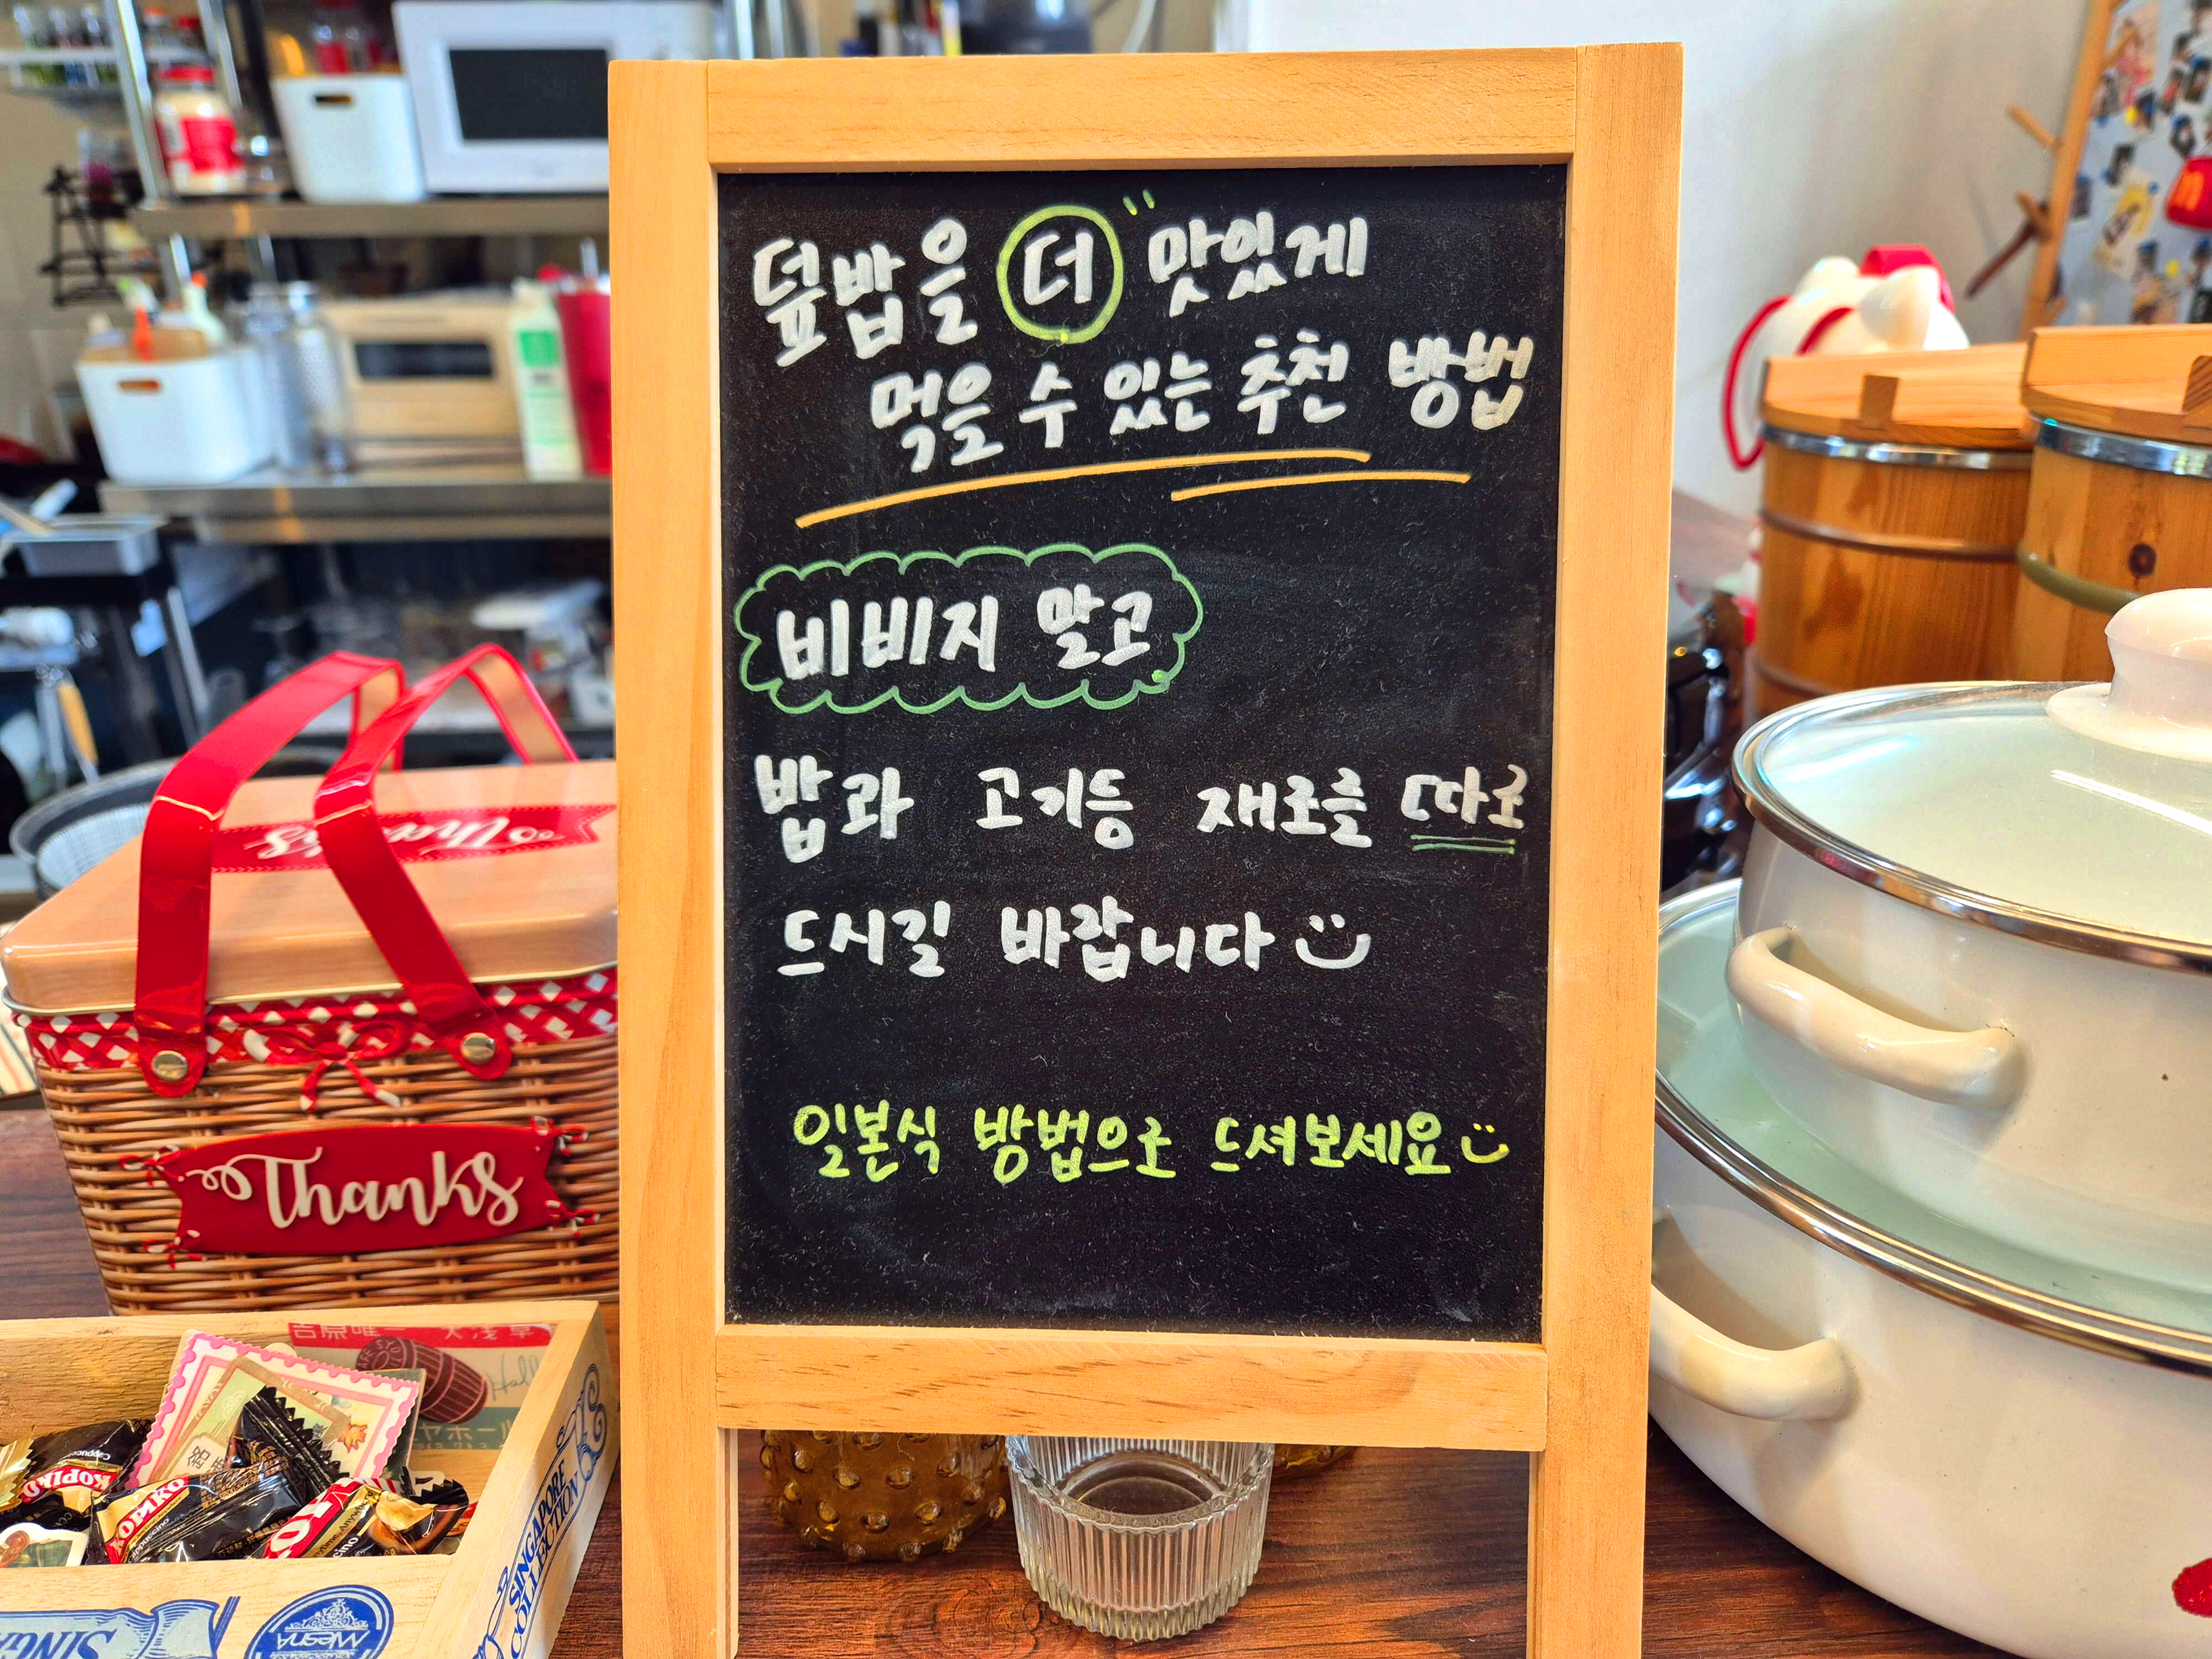 덮밥을 더 맛있게
먹을 수 있는 추천 방법
비비지 말고
밥과 고기등 재로를 따로
드시길 바랍니다
일본식 방법으로 드셔보세요
Thanks
Thanks
KOPIKO
KOPIKO
Cappuccino
SINGAPORE
COLLECTION